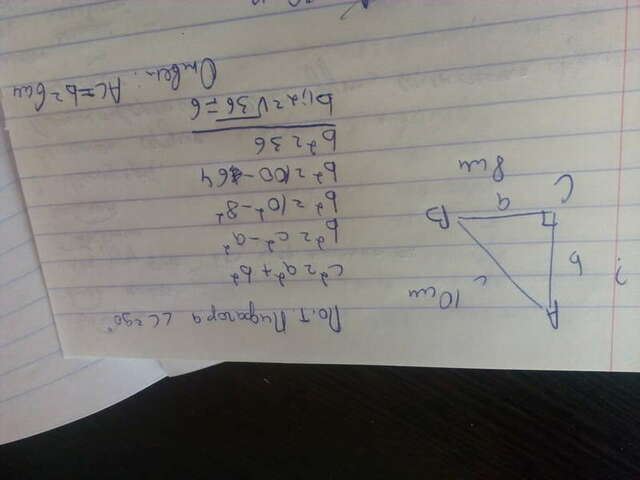 A
?
b
c
10 см
C
a
B
8 см
По. т. Пифагора ∠C = 90°
c² = a² + b²
b² = c² - a²
b² = 10² - 8²
b² = 100 - 64
b² = 36
b₁,₂ = √36 = 6
Ответ: AC = b = 6 см